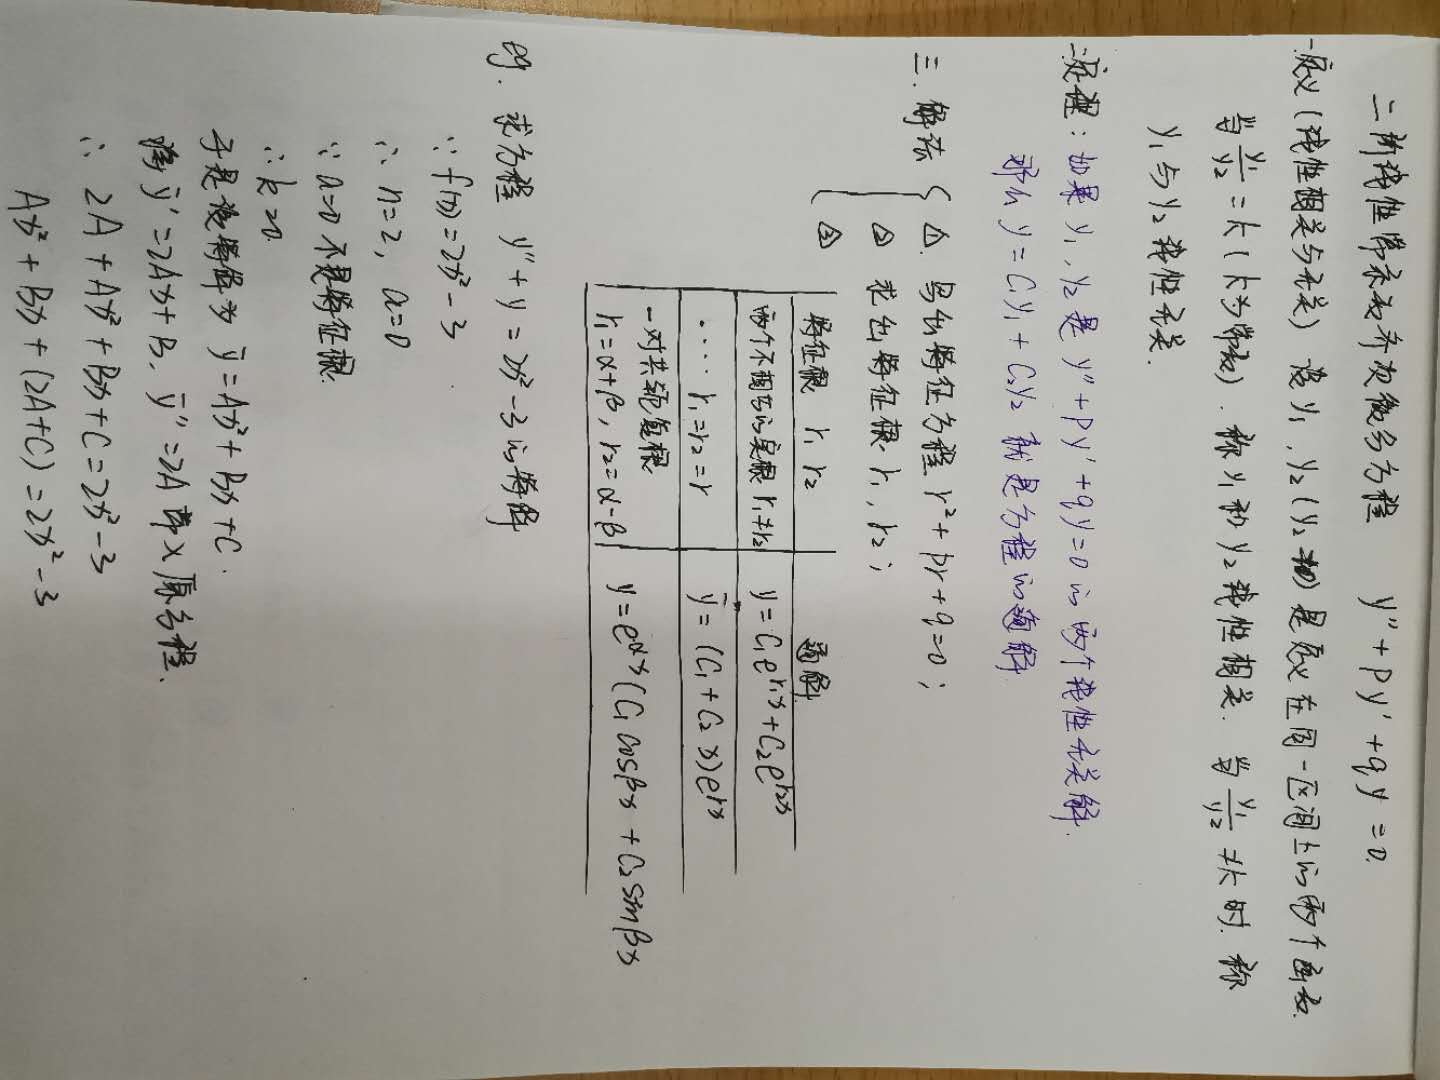 二阶线性常系数齐次微分方程 y''+py'+qy=0.
一.定义(线性相关与无关) 设y₁,y₂(y₂≠0)是定义在同一区间上的两个函数.
当y₁/y₂=k(k为常数).称y₁和y₂线性相关.当y₁/y₂≠k时.称
y₁与y₂线性无关.
二.定理:如果y₁,y₂是y''+py'+qy=0的两个线性无关解.
那么y=C₁y₁+C₂y₂就是方程的通解.
三.解法 { ①.写出特征方程r²+pr+q=0;
② 求出特征根r₁,r₂;
③
特征根 r₁ r₂ 通解
两个不相等的实根r₁≠r₂ y=C₁eʳ¹ˣ+C₂eʳ²ˣ
.... r₁=r₂=r y=(C₁+C₂x)eʳˣ
一对共轭复根
r₁=α+β,r₂=α-β y=eᵅˣ(C₁cosβx+C₂sinβx
eg. 求方程 y''+y=2x²-3的特解
∵f(x)=2x²-3
∴n=2, a=0
∵a=0不是特征根.
∴k=0
于是设特解为 ȳ=Ax²+Bx+C.
将ȳ'=2Ax+B, ȳ''=2A带入原方程.
∴ 2A+Ax²+Bx+C=2x²-3
Ax²+Bx+(2A+C)=2x²-3